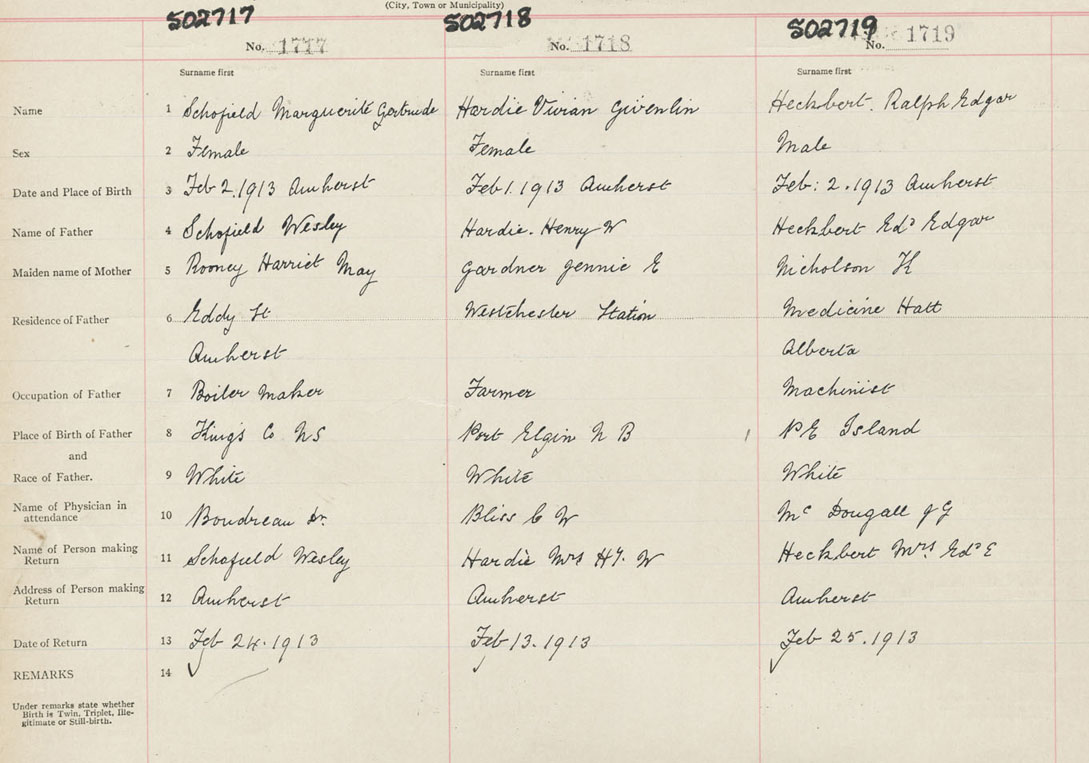 (City, Town or Municipality)
502717 502718 502719
No. 1717 No. 1718 No. 1719
Surname first Surname first Surname first
Name 1 Schofield Marguerité Gertrude Hardie Vivian Givenlin Heckbert. Ralph Edgar
Sex 2 Female Female Male
Date and Place of Birth 3 Feb 2.1913 Amherst Feb 1.1913 Amherst Feb: 2.1913 Amherst
Name of Father 4 Schofield Wesley Hardie. Henry W Heckbert Edd Edgar
Maiden name of Mother 5 Rooney Harriet May Gardner Jennie E Nicholson K
Residence of Father 6 Eddy St Westchester Station Medicine Hatt
Amherst Alberta
Occupation of Father 7 Boiler Maker Farmer Machinist
Place of Birth of Father 8 Kings Co NS Port Elgin N B PE Island
and
Race of Father. 9 White White White
Name of Physician in
attendance 10 Boudreau Dr. Bliss C W Mc Dougall J G
Name of Person making
Return 11 Schofield Wesley Hardie Mrs Hy. W Heckbert Mrs Edd E
Address of Person making
Return 12 Amherst Amherst Amherst
Date of Return 13 Feb 24.1913 Feb 13.1913 Feb 25.1913
REMARKS 14
Under remarks state whether
Birth is Twin, Triplet, Ille-
gitimate or Still-birth.